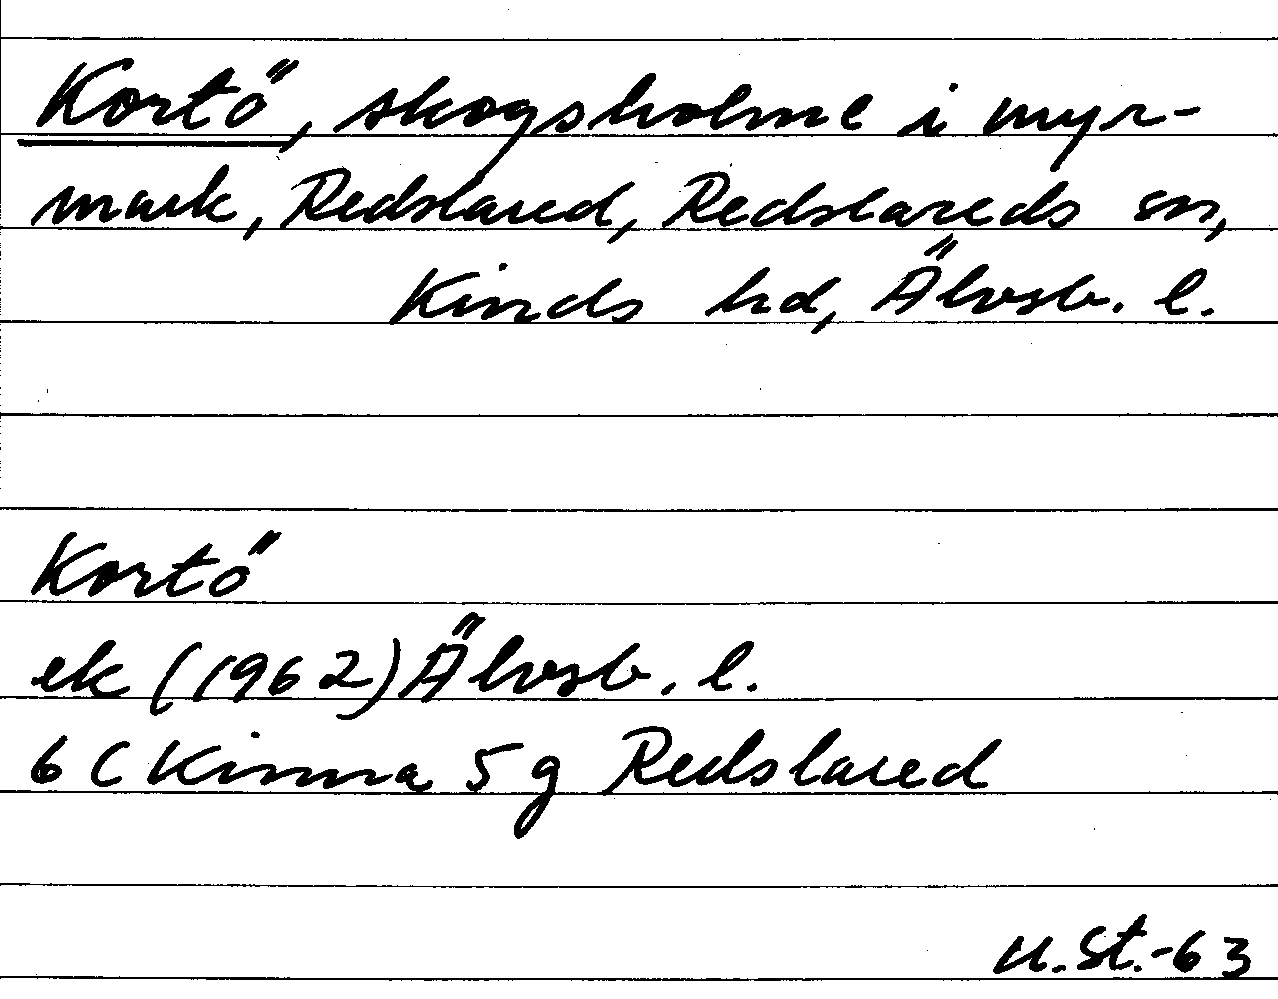 Kortö, skogsholme i myr-
mark, Redslared, Redslareds sn,
Kinds hd, Älvsb. l.
Kortö
ek (1962) Älvsb. l.
6 C Kinna 5 g Redslared
U.St.-63